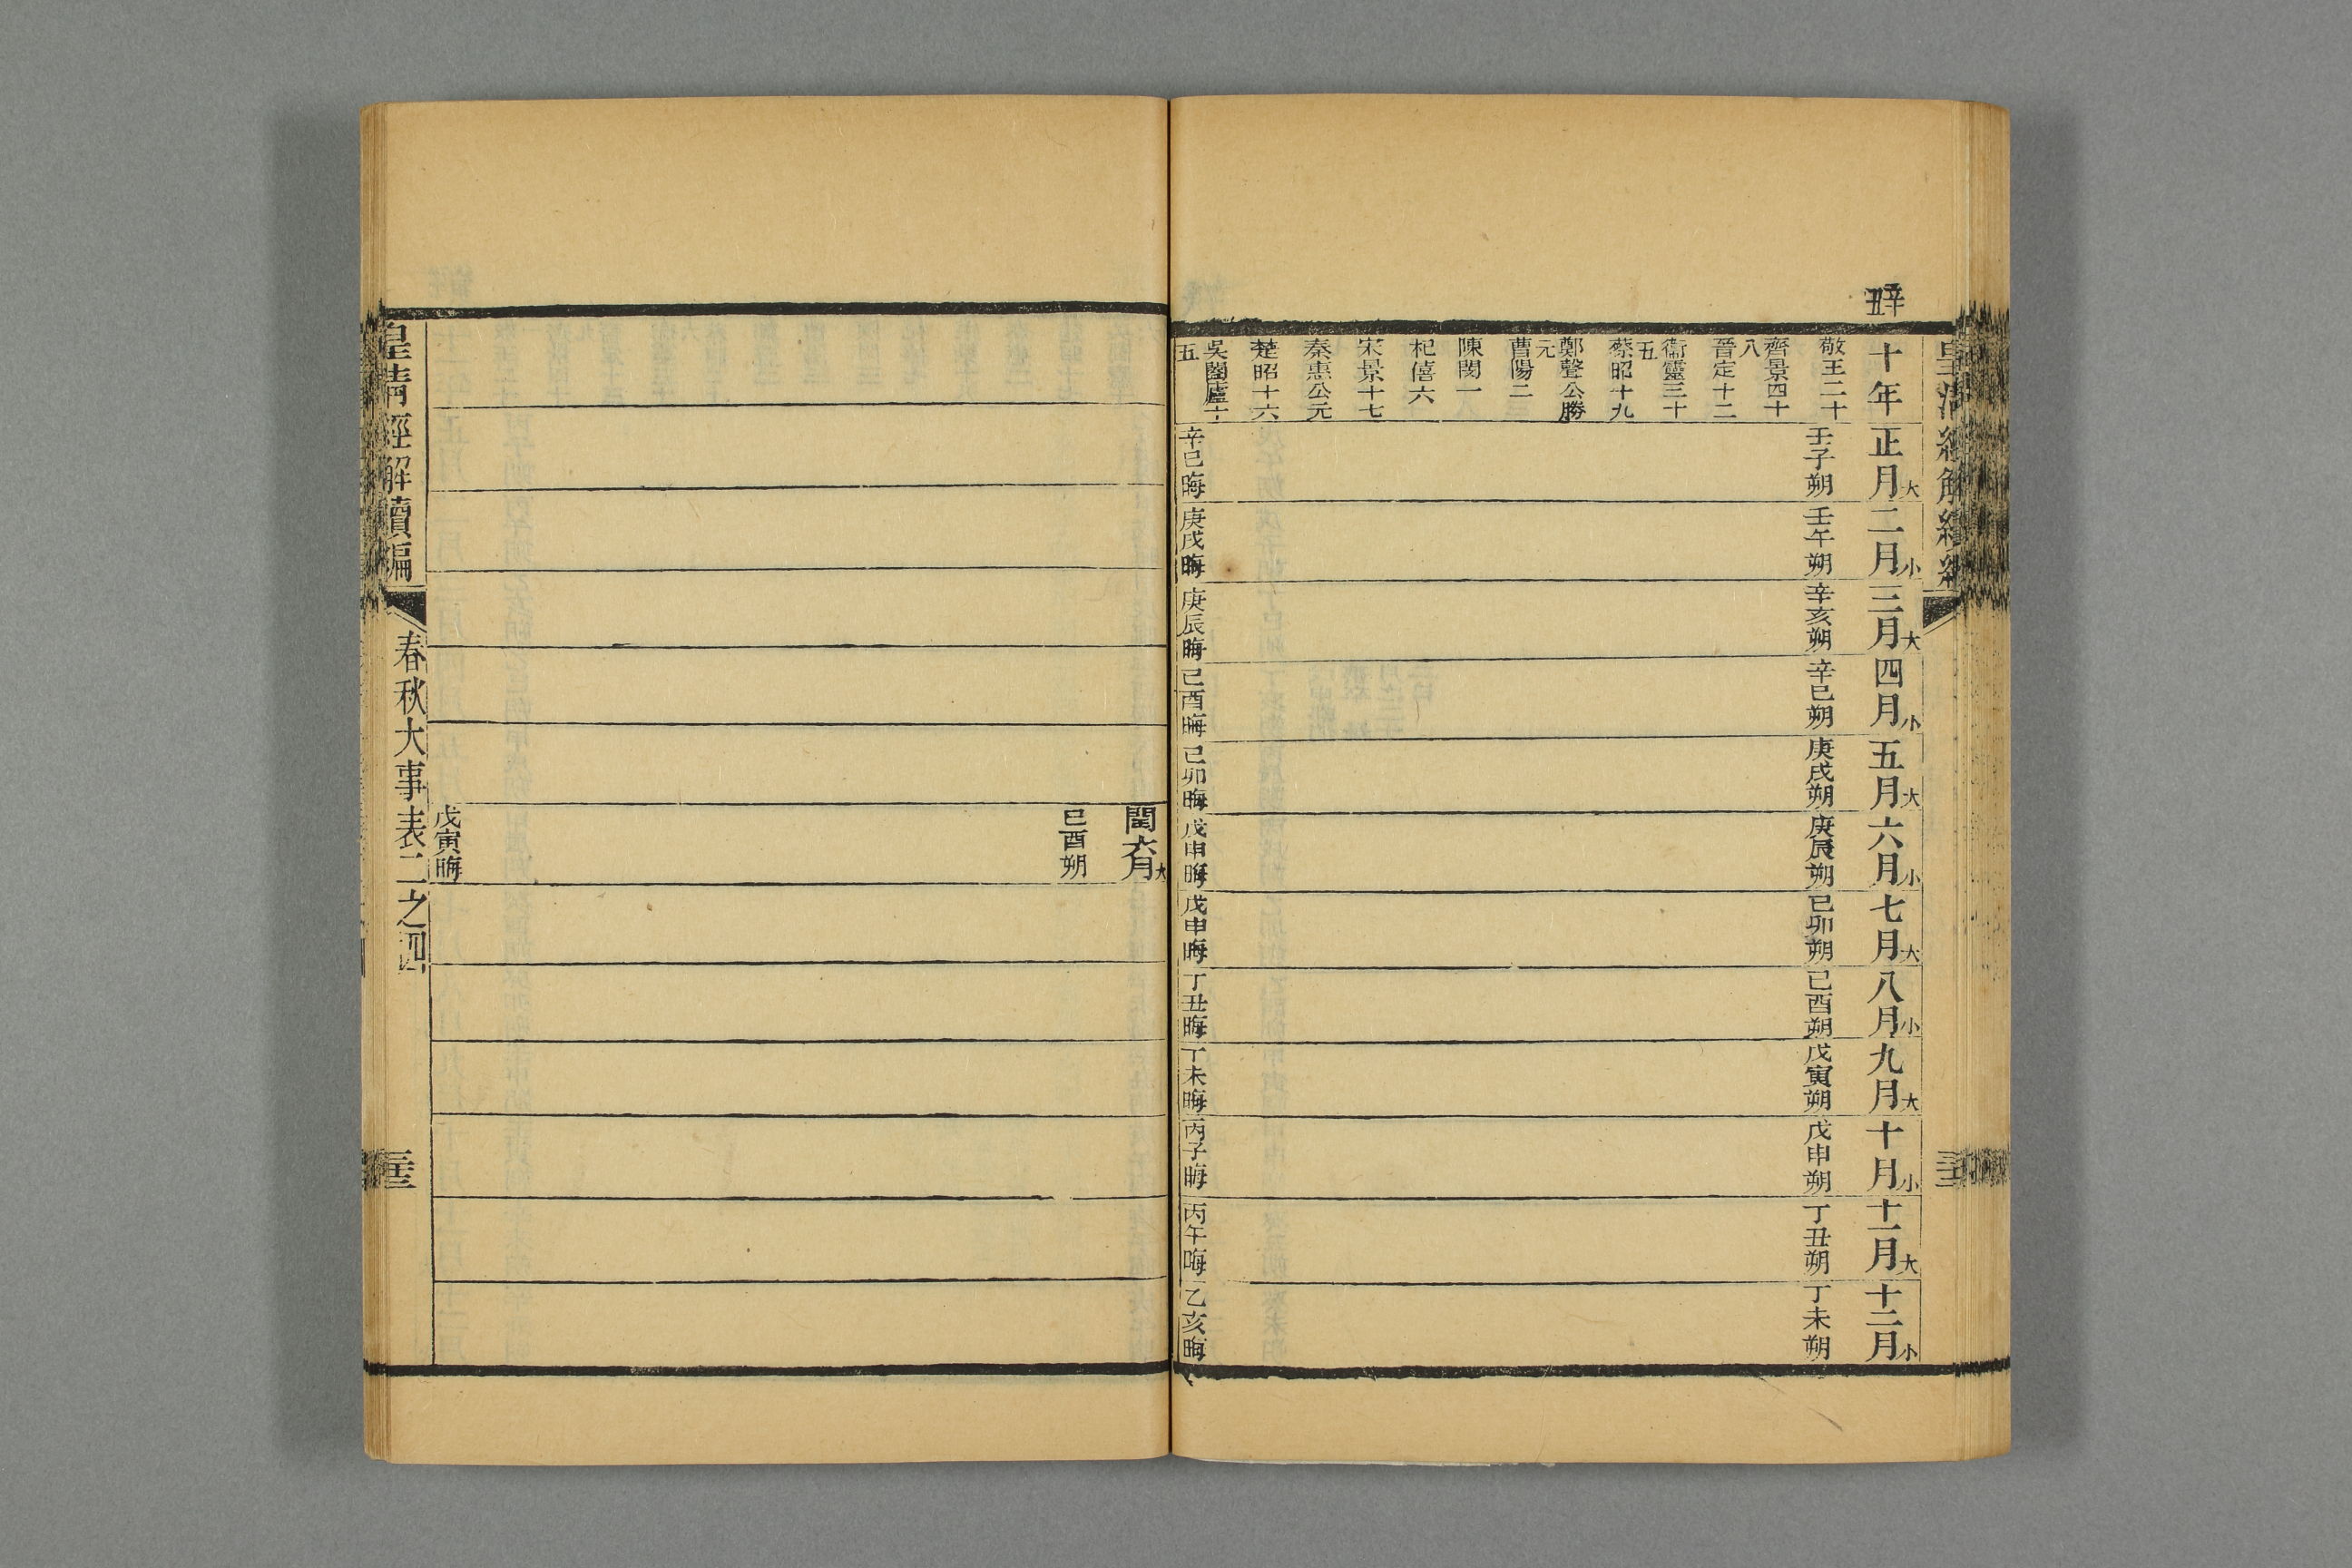 辛丑
十年
敬王二十
齊景四十八
晉定十二
衞靈三十五
蔡昭十九
鄭聲公勝元
曹陽二
陳閔二
杞僖六
宋景十七
秦惠公元
楚昭十六
吳闔廬十五
正月大
壬子朔
辛巳晦
二月小
壬午朔
庚戌晦
三月大
辛亥朔
庚辰晦
四月小
辛巳朔
己酉晦
五月大
庚戌朔
己卯晦
六月小
庚辰朔
戊申晦
七月大
己卯朔
戊申晦
八月小
己酉朔
丁丑晦
九月大
戊寅朔
丁未晦
十月小
戊申朔
丙子晦
十一月大
丁丑朔
丙午晦
十二月小
丁未朔
乙亥晦
閏六月大
己酉朔
戊寅晦
皇清經解續編
春秋大事表二之四